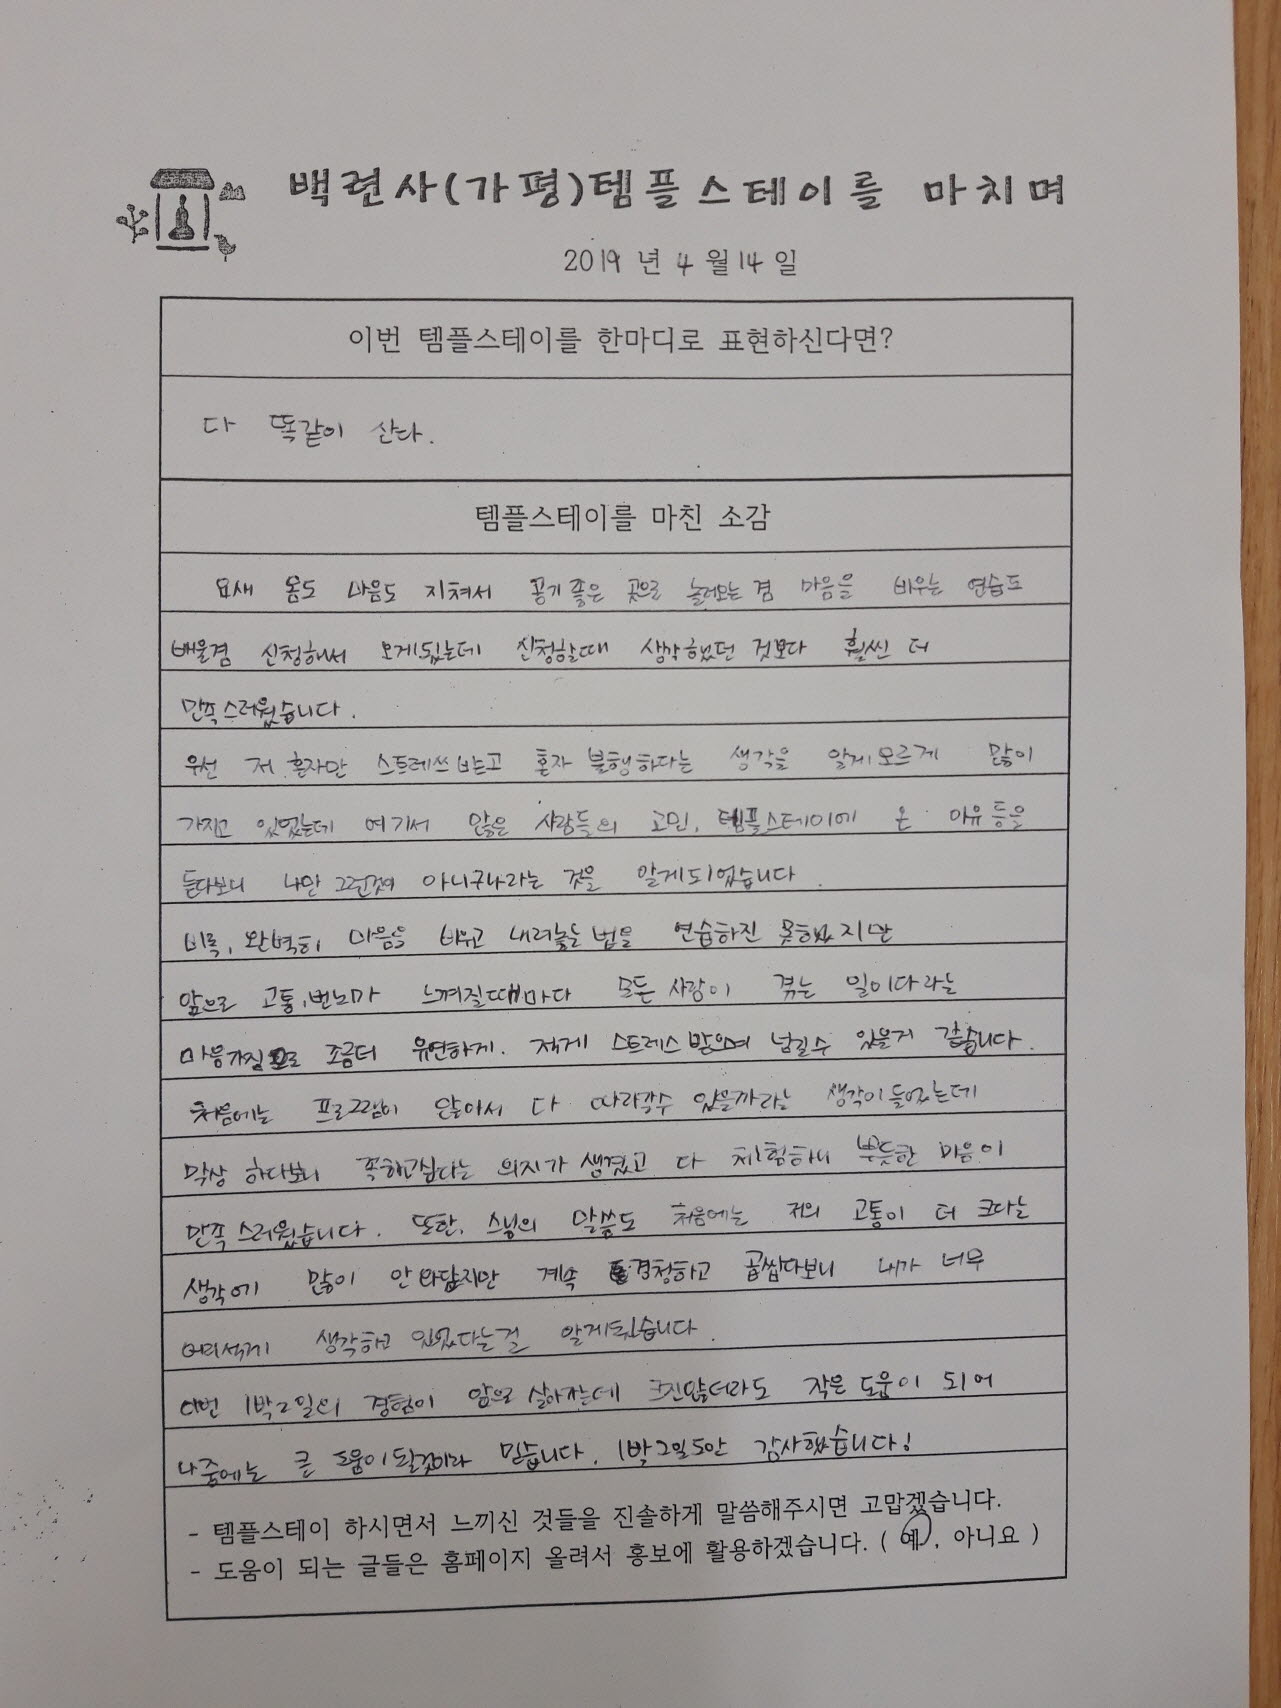 백련사(가평)템플스테이를 마치며
2019 년 4 월 14 일
이번 템플스테이를 한마디로 표현하신다면?
다 똑같이 산다.
템플스테이를 마친 소감
요새 몸도 마음도 지쳐서 공기좋은 곳으로 놀러오는겸 마음을 비우는 연습도
배울겸 신청해서 오게되었는데 신청할때 생각했던 것보다 훨씬 더
만족스러웠습니다.
우선 저 혼자만 스트레쓰받고 혼자 불행하다는 생각을 알게모르게 많이
가지고 있었는데 여기서 많은 사람들의 고민, 템플스테이에 온 이유등을
듣다보니 나만 그런것이 아니구나라는 것을 알게되었습니다.
비록, 완벽히 마음을 비우고 내려놓는법을 연습하진 못했지만
앞으로 고통, 번뇌가 느껴질때마다 모든 사람이 겪는 일이다라는
마음가짐으로 조금더 유연하게. 적게 스트레스 받으며 넘길수 있을거 같습니다.
처음에는 프로그램이 많아서 다 따라갈수 있을까라는 생각이들었는데
막상 하다보니 족하고싶다는 의지가 생겼고 다 체험하니 뿌듯한 마음이
만족스러웠습니다. 또한, 스님의 말씀도 처음에는 저의 고통이 더 크다는
생각에 많이 안와닿지만 계속 경청하고 곱씹다보니 내가 너무
어리석게 생각하고 있었다는걸 알게됬습니다.
이번 1박2일의 경험이 앞으로 살아가는데 크진않더라도 작은 도움이 되어
나중에는 큰 도움이될것이라 믿습니다. 1박2일동안 감사했습니다!
- 템플스테이 하시면서 느끼신 것들을 진솔하게 말씀해주시면 고맙겠습니다.
- 도움이 되는 글들은 홈페이지 올려서 홍보에 활용하겠습니다. ( 예, 아니요 )